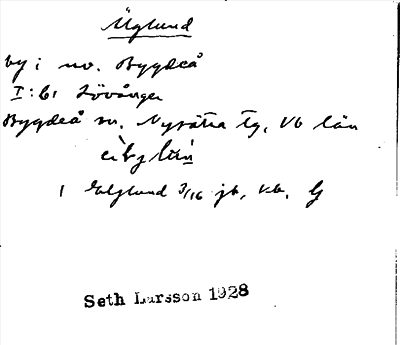 Älglund
by i no. Bygdeå
I: bl Lövånger
Bygdeå sn. Nysätra tg, Vb län
1 Elglund 3/16 jb, kb, G
Seth Larsson 1928